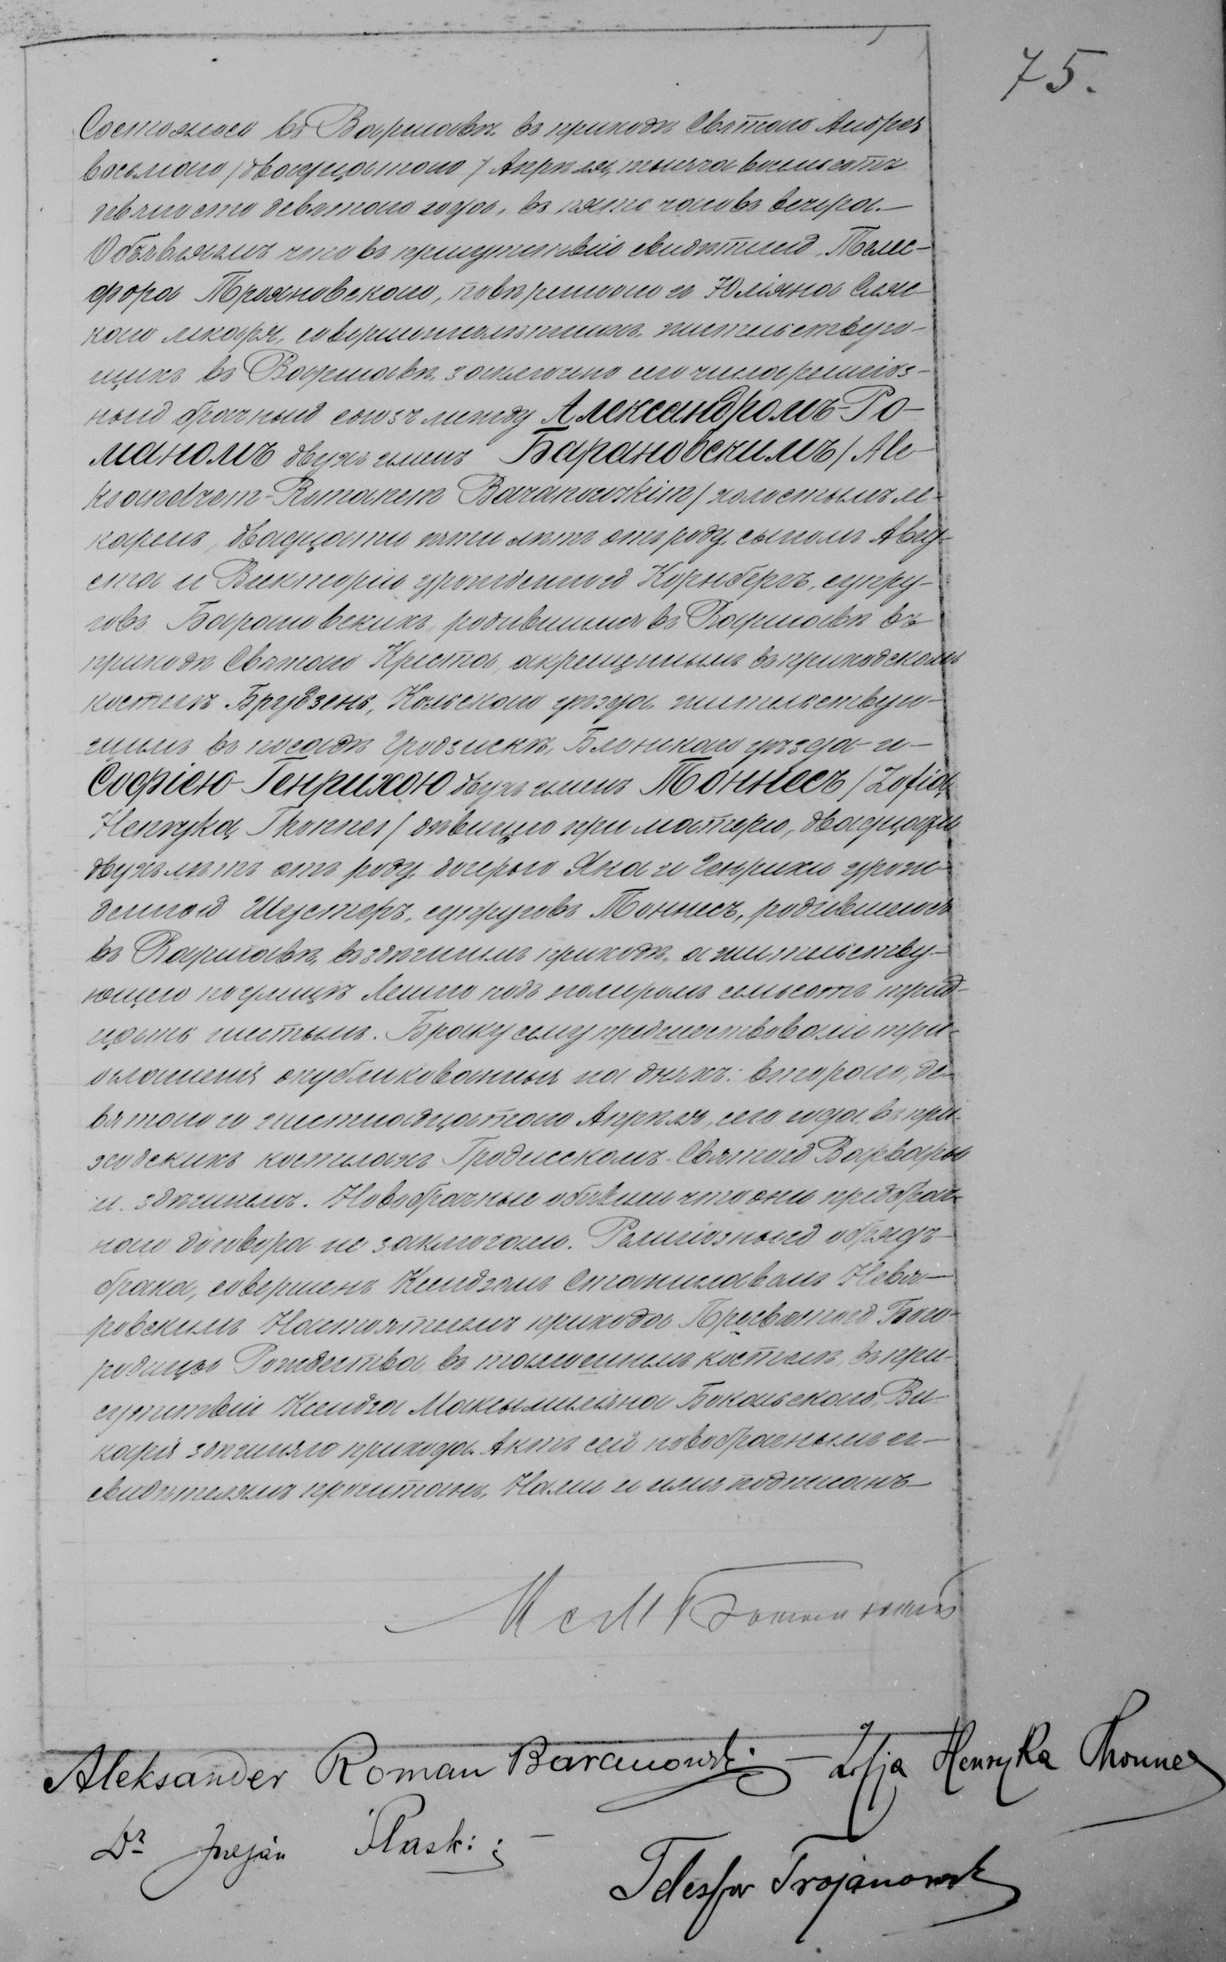 75.
Состоялось въ Варшавѣ въ приходѣ Святаго Андрея
восьмаго /двадцатаго/ Апрѣля, тысяча восемьсотъ
девяносто девятаго года, въ пять часовъ вечера.—
Объявляемъ что въ присутствіи свидѣтелей, Телес-
фора Трояновскаго, повѣреннаго и Юліана Сляс-
каго лекаря, совершеннолѣтнихъ, жительствую-
щихъ въ Варшавѣ, заключенъ сего числа религіоз-
ный брачный союзъ между Александромъ-Ро-
маномъ двухъ именъ Барановскимъ / Ale-
ksandrem-Romanem Baranowskim / холостымъ ле-
каремъ, двадцати пяти лѣтъ отъ роду, сыномъ Авгу-
ста и Викторіи урожденной Корнбергъ, супру-
говъ Барановскихъ, родившимся въ Варшавѣ въ
приходѣ Святаго Креста, а крещеннымъ въ приходскомъ
костелѣ Брудзенъ, Кольскаго уѣзда, жительствую-
щимъ въ посадѣ Гродзискъ, Блонскаго уѣзда и—
Софіею-Генрикою двухъ именъ Тоннесъ / Zofią
Henryką Thonnes / дѣвицею при матери, двадцати
двухъ лѣтъ отъ роду, дочерью Яна и Генрики урож-
денной Шустеръ, супруговъ Тоннесъ, родившеюся
въ Варшавѣ, въ здѣшнемъ приходѣ, а жительству-
ющею по улицѣ Лешно подъ номеромъ семьсотъ трид-
цать шестымъ. Браку сему предшествовали три
оглашенія опубликованныя на дняхъ: втораго, де-
вятаго и шестнадцатаго Апрѣля, сего года, въ при-
ходскихъ костелахъ Гродисскомъ Святой Варвары
и здѣшнемъ. Новобрачные объявили что они предбрач-
наго договора не заключали. Религіозный обрядъ
брака, совершенъ Ксендзомъ Станиславомъ Невя-
ровскимъ Настоятелемъ прихода Пресвятой Бого-
родицы Рождества въ тамошнемъ костелѣ, въ при-
сутствіи Ксендза Максымиліяна Бокальскаго, Ви-
карія здѣшняго прихода. Актъ сей новобрачнымъ и—
свидѣтелямъ прочитанъ, Нами и ими подписанъ—
Aleksander Roman Baranowski — Zofja Henryka Thonnes
Dr Juljan Ślaski
Telesfor Trojanowski